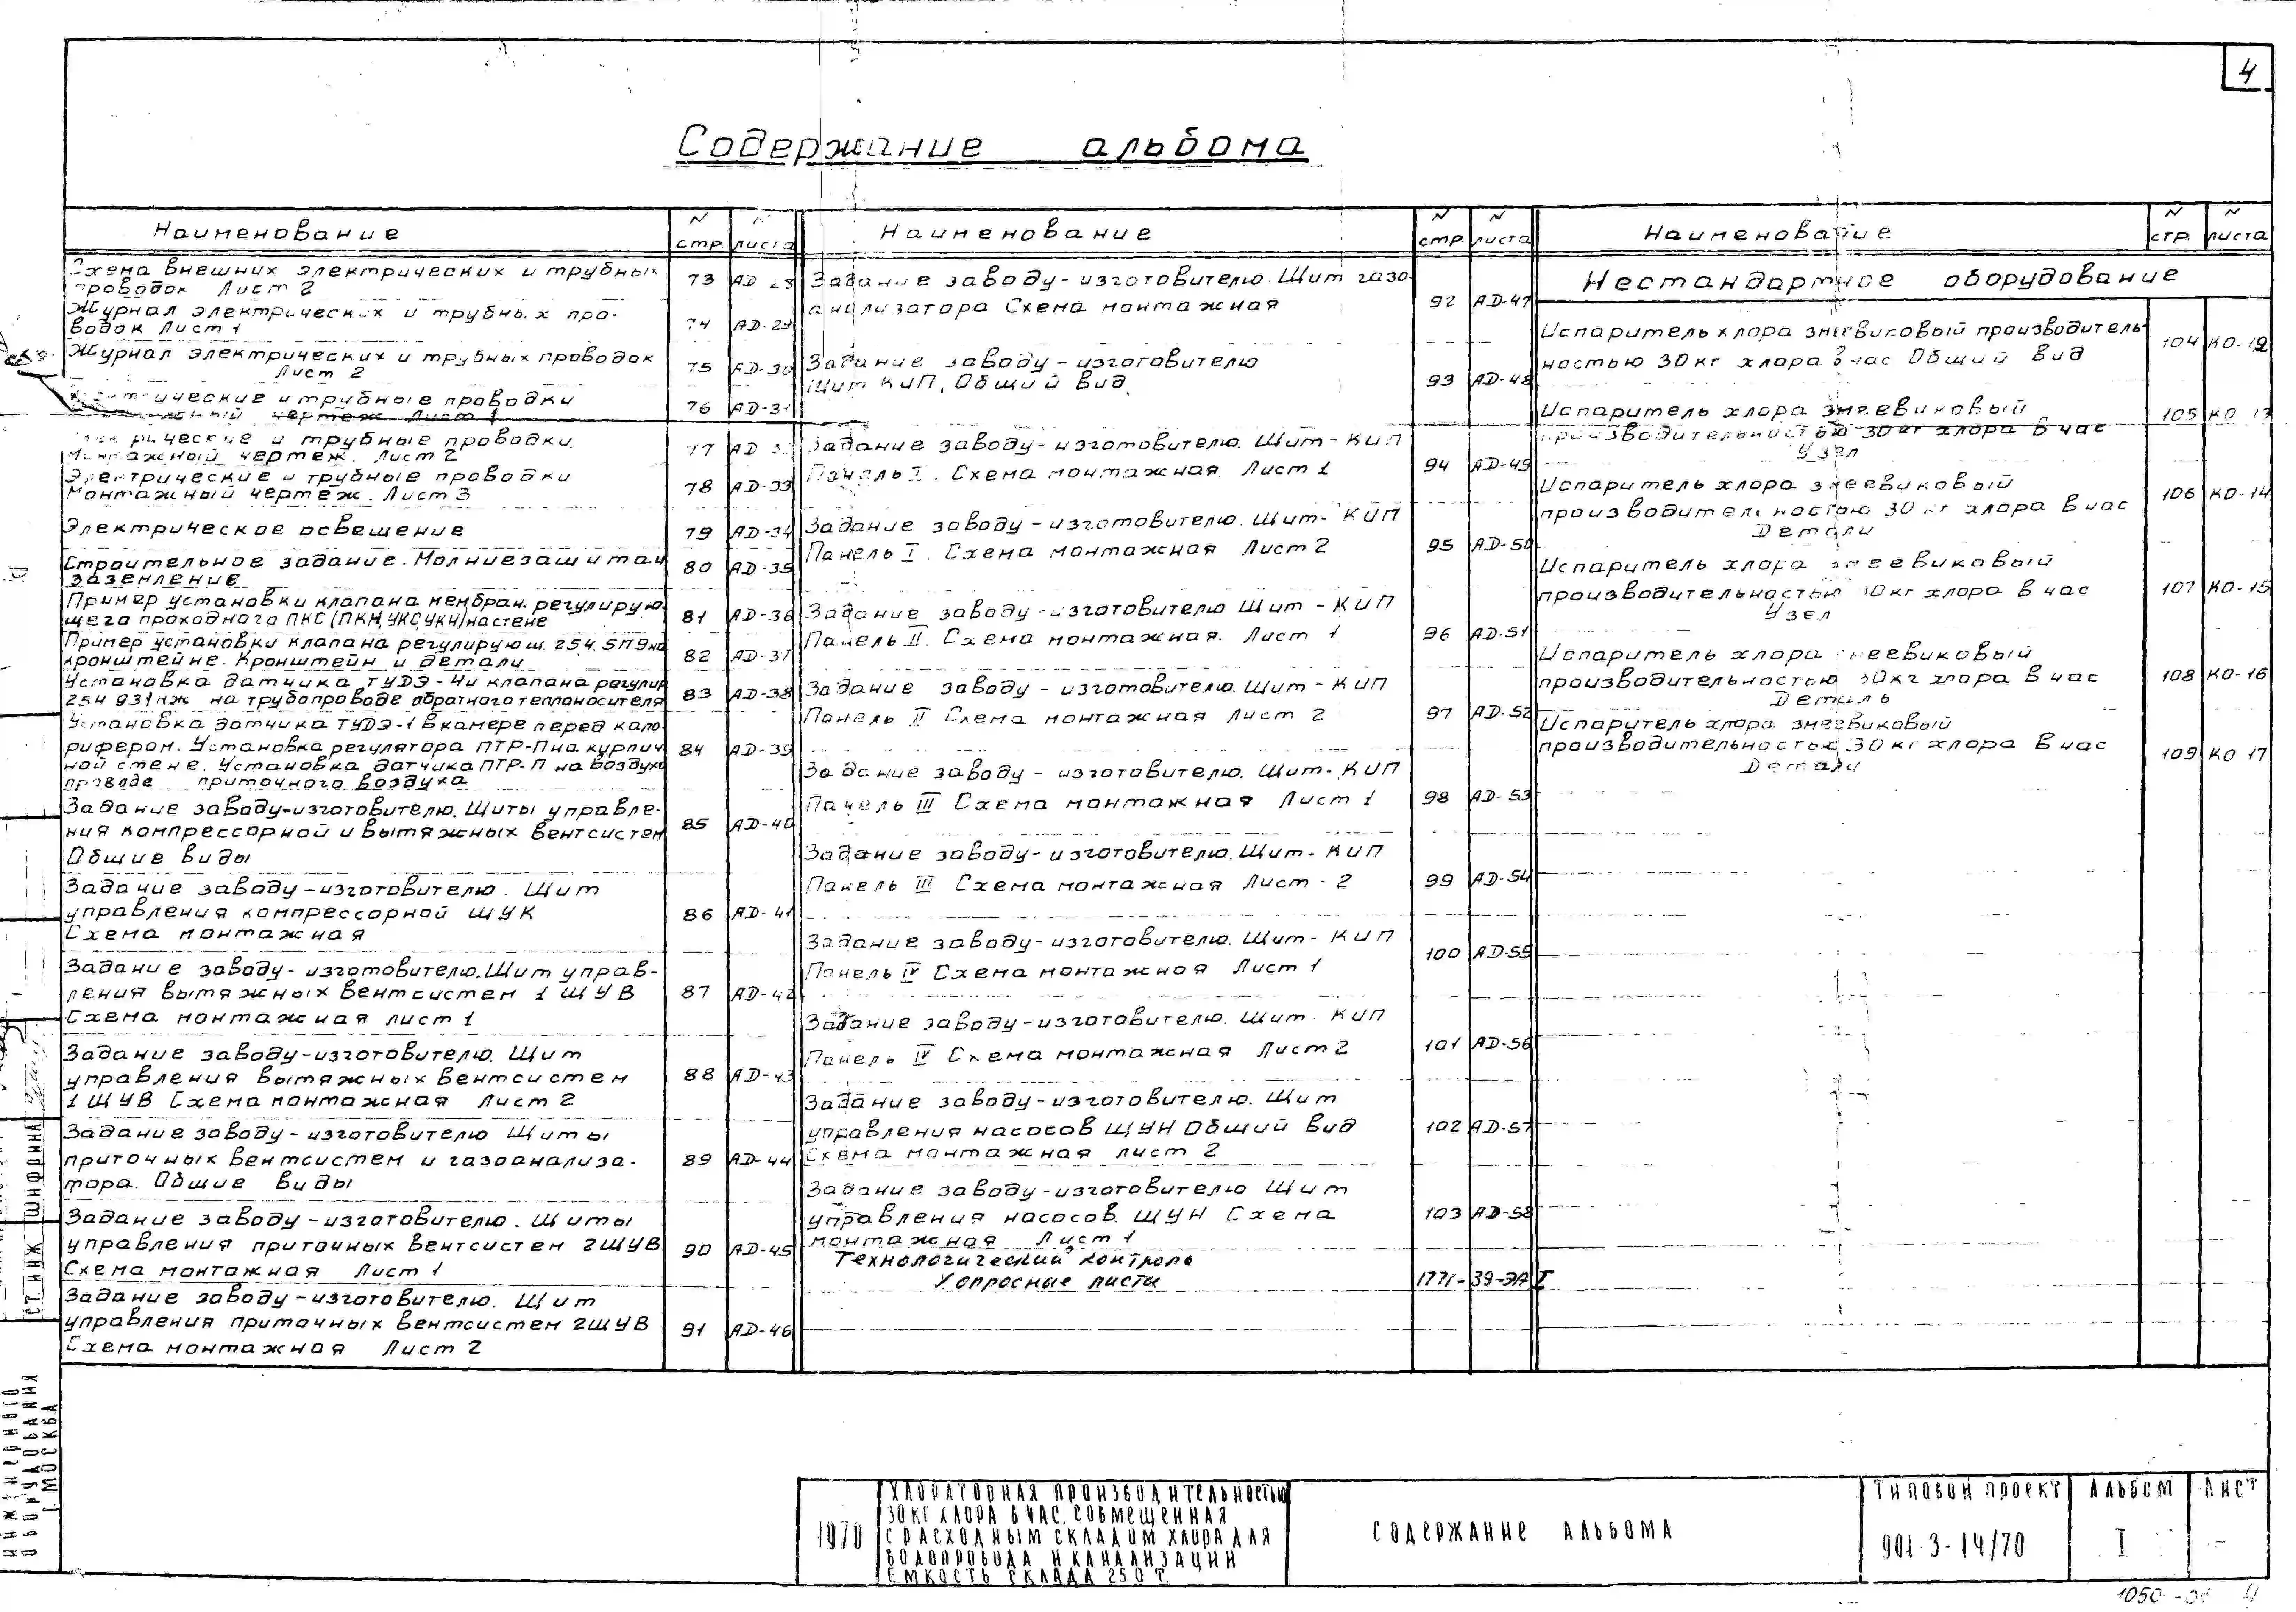 4
Содержание альбома
Наименование
N стр.
N листа
Схема внешних электрических и трубных
проводок Лист 2
73 АД 28
Журнал электрических и трубных про-
водок Лист 1
74 АД-29
Журнал электрических и трубных проводок
Лист 2
75 АД-30
Электрические и трубные проводки
чертеж Лист 1
76 АД-31
Электрические и трубные проводки.
Монтажный чертеж. Лист 2
77 АД
Электрические и трубные проводки
Монтажный чертеж. Лист 3
78 АД-33
Электрическое освещение
79 АД-34
Строительное задание. Молниезащита и
заземление
80 АД-35
Пример установки клапана мембран. регулирую-
щего проходного ПКС (ПКН, УКС, УКН) на стене
81 АД-36
Пример установки клапана регулирующ. 254. 5П9 на
кронштейне. Кронштейн и детали
82 АД-37
Установка датчика ТУДЭ-4и клапана регулир
254 931нж на трубопроводе обратного теплоносителя
83 АД-38
Установка датчика ТУДЭ-1 в камере перед кало
рифером. Установка регулятора ПТР-П на кирпич
ной стене. Установка датчика ПТР-П на воздухо
проводе приточного воздуха
84 АД-39
Задание заводу-изготовителю. Щиты управле-
ния компрессорной и вытяжных вентсистем
Общие виды
85 АД-40
Задание заводу-изготовителю. Щит
управления компрессорной ЩУК
Схема монтажная
86 АД-41
Задание заводу-изготовителю. Щит управ-
ления вытяжных вентсистем 1 ЩУВ
Схема монтажная лист 1
87 АД-42
Задание заводу-изготовителю. Щит
управления вытяжных вентсистем
1 ЩУВ Схема монтажная Лист 2
88 АД-43
Задание заводу-изготовителю Щиты
приточных вентсистем и газоанализа-
тора. Общие виды
89 АД-44
Задание заводу-изготовителю. Щиты
управления приточных вентсистем 2ЩУВ
Схема монтажная Лист 1
90 АД-45
Задание заводу-изготовителю. Щит
управления приточных вентсистем 2ЩУВ
Схема монтажная Лист 2
91 АД-46
Наименование
N стр.
N листа
Задание заводу-изготовителю. Щит газо-
анализатора Схема монтажная
92 АД-47
Задание заводу-изготовителю
Щит КИП. Общий вид.
93 АД-48
Задание заводу-изготовителю. Щит-КИП
Панель I. Схема монтажная Лист 1
94 АД-49
Задание заводу-изготовителю. Щит-КИП
Панель I. Схема монтажная Лист 2
95 АД-50
Задание заводу-изготовителю Щит-КИП
Панель II. Схема монтажная. Лист 1
96 АД-51
Задание заводу-изготовителю. Щит-КИП
Панель II Схема монтажная Лист 2
97 АД-52
Задание заводу-изготовителю. Щит-КИП
Панель III Схема монтажная Лист 1
98 АД-53
Задание заводу-изготовителю. Щит-КИП
Панель III Схема монтажная Лист-2
99 АД-54
Задание заводу-изготовителю. Щит-КИП
Панель IV Схема монтажная Лист 1
100 АД-55
Задание заводу-изготовителю. Щит-КИП
Панель IV Схема монтажная Лист 2
101 АД-56
Задание заводу-изготовителю. Щит
управления насосов ЩУН Общий вид
Схема монтажная лист 2
102 АД-57
Задание заводу-изготовителю Щит
управления насосов. ЩУН Схема
монтажная Лист 1
103 АД-58
Технологический контроль
Xопросные листы
1771-39-ЭА I
Наименование
N стр.
N листа
Нестандартное оборудование
Испаритель хлора змеевиковый производитель-
ностью 30 кг хлора в час Общий вид
104 КО-12
Испаритель хлора змеевиковый
производительностью 30 кг хлора в час
Узел
105 КО 13
Испаритель хлора змеевиковый
производительностью 30 кг хлора в час
Детали
106 КО-14
Испаритель хлора змеевиковый
производительностью 30 кг хлора в час
Узел
107 КО-15
Испаритель хлора змеевиковый
производительностью 30 кг хлора в час
Деталь
108 КО-16
Испаритель хлора змеевиковый
производительностью 30 кг хлора в час
Детали
109 КО 17
СТ. ИНЖ ШНОДИНА
ИНЖЕНЕРНОГО
ОБОРУДОВАНИЯ
Г. МОСКВА
1970
ХЛОРАТОРНАЯ ПРОИЗВОДИТЕЛЬНОСТЬЮ
30 КГ ХЛОРА В ЧАС, СОВМЕЩЕННАЯ
С РАСХОДНЫМ СКЛАДОМ ХЛОРА ДЛЯ
ВОДОПРОВОДА И КАНАЛИЗАЦИИ
ЕМКОСТЬ СКЛАДА 250 Т.
СОДЕРЖАНИЕ АЛЬБОМА
ТИПОВОЙ ПРОЕКТ
901-3-14/70
АЛЬБОМ
I
ЛИСТ
-
1050-01 4